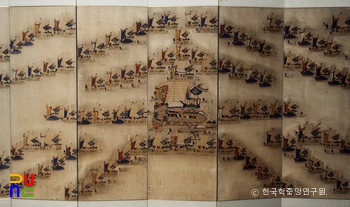 ⓒ 한국학중앙연구원